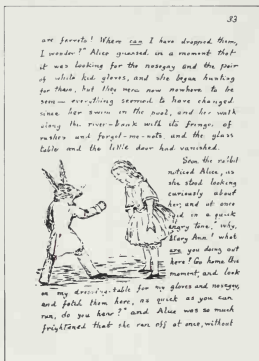 33
are ferrets! Where can I have dropped them,
I wonder?" Alice guessed in a moment that
it was looking for the nosegay and the pair
of white kid gloves, and she began hunting
for them, but they were now nowhere to be
seen— everything seemed to have changed
since her swim in the pool, and her walk
along the river-bank with its fringe of
rushes and forget-me-nots, and the glass
table and the little door had vanished.
Soon the rabbit
noticed Alice, as
she stood looking
curiously about
her, and at once
said in a quick
angry tone, "why,
Mary Ann! what
are you doing out
here? Go home this
moment, and look
on my dressing-table for my gloves and nosegay,
and fetch them here, as quick as you can
run, do you hear?" and Alice was so much
frightened that she ran off at once, without